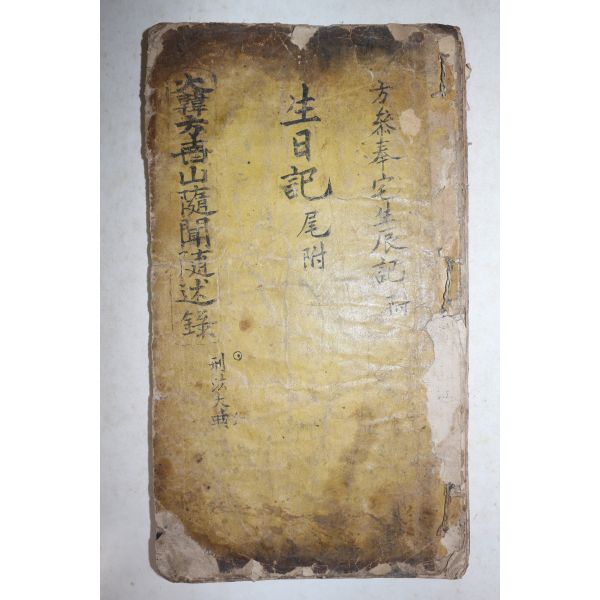 方叅奉宅生辰記 附
生日記 尾附
大韓方再山隨聞隨述錄
刑法大典